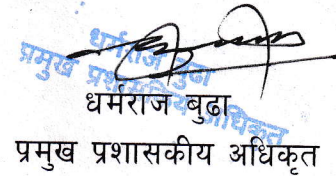 धर्मराज बुढा
प्रमुख प्रशासकीय अधिकृत
धर्मराज बुढा
प्रमुख प्रशासकीय अधिकृत